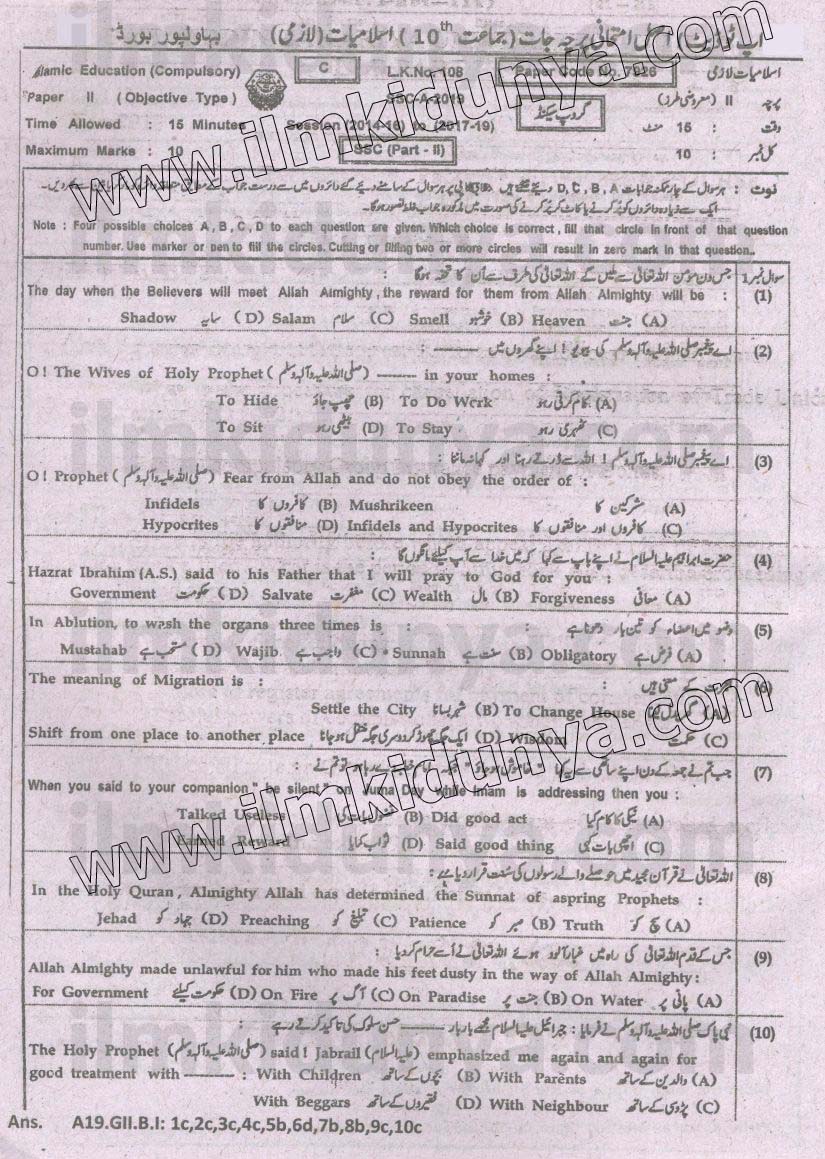 اپ ٹو ڈیٹ اصلی امتحانی پرچہ جات (جماعت 10th) اسلامیات (لازمی) بہاولپور بورڈ
Islamic Education (Compulsory) C L.K.No. 108 Paper Code No. 7926 اسلامیات لازمی
Paper II (Objective Type) SSC-A-2019 پرچہ II (معروضی طرز)
Time Allowed : 15 Minutes Session (2014-16) to (2017-19) گروپ سیکنڈ وقت : 15 منٹ
Maximum Marks : 10 SSC (Part - II) کل نمبر : 10
نوٹ : ہر سوال کے چار ممکنہ جوابات D, C, B, A دیئے گئے ہیں
Note : Four possible choices A, B, C, D to each question are given. Which choice is correct, fill that circle in front of that question
number. Use marker or pen to fill the circles. Cutting or filling two or more circles will result in zero mark in that question..
سوال نمبر 1 جس دن مومن اللہ تعالیٰ سے ملیں گے اللہ تعالیٰ کی طرف سے اُن کا تحفہ ہوگا :
The day when the Believers will meet Allah Almighty, the reward for them from Allah Almighty will be : (1)
Shadow سایہ (D) Salam سلام (C) Smell خوشبو (B) Heaven جنت (A)
اے پیغمبر صلی اللہ علیہ وآلہ وسلم کی بیویو ! اپنے گھروں میں -------- : (2)
O! The Wives of Holy Prophet (صلی اللہ علیہ وآلہ وسلم) -------- in your homes :
To Hide چھپ جاؤ (B) To Do Work کام کرتی رہو (A)
To Sit بیٹھی رہو (D) To Stay ٹھہری رہو (C)
اے پیغمبر صلی اللہ علیہ وآلہ وسلم ! اللہ سے ڈرتے رہنا اور کہا نہ ماننا : (3)
O! Prophet (صلی اللہ علیہ وآلہ وسلم) Fear from Allah and do not obey the order of :
Infidels کافروں کا (B) Mushrikeen مشرکین کا (A)
Hypocrites منافقوں کا (D) Infidels and Hypocrites کافروں اور منافقوں کا (C)
حضرت ابراہیم علیہ السلام نے اپنے باپ سے کہا کہ میں خدا سے آپ کیلئے مانگوں گا : (4)
Hazrat Ibrahim (A.S.) said to his Father that I will pray to God for you :
Government حکومت (D) Salvate مغفرت (C) Wealth مال (B) Forgiveness معافی (A)
In Ablution, to wash the organs three times is : وضو میں اعضاء کو تین بار دھونا ہے : (5)
Mustahab مستحب ہے (D) Wajib واجب ہے (C) Sunnah سنت ہے (B) Obligatory فرض ہے (A)
The meaning of Migration is : ہجرت کے معنی ہیں : (6)
Settle the City شہر بسانا (B) To Change House گھر بدلنا (A)
Shift from one place to another place ایک جگہ چھوڑ کر دوسری جگہ منتقل ہو جانا (D) Wisdom حکمت (C)
جب تم نے جمعہ کے دن اپنے ساتھی سے یہ کہا "خاموش ہو جاؤ" جبکہ امام خطبہ دے رہا ہو تو تم نے : (7)
When you said to your companion " be silent " on Juma Day while Imam is addressing then you :
Talked Useless (B) Did good act نیکی کا کام کیا (A)
Earned Reward ثواب کمایا (D) Said good thing اچھی بات کی (C)
اللہ تعالیٰ نے قرآن مجید میں حوصلے والے رسولوں کی سنت قرار دیا ہے : (8)
In the Holy Quran, Almighty Allah has determined the Sunnat of aspring Prophets :
Jehad جہاد کو (D) Preaching تبلیغ کو (C) Patience صبر کو (B) Truth سچ کو (A)
جس کے قدم اللہ تعالیٰ کی راہ میں غبار آلود ہوئے اللہ تعالیٰ نے اُسے حرام کر دیا : (9)
Allah Almighty made unlawful for him who made his feet dusty in the way of Allah Almighty:
For Government حکومت کیلئے (D) On Fire آگ پر (C) On Paradise جنت پر (B) On Water پانی پر (A)
نبی پاک صلی اللہ علیہ وآلہ وسلم نے فرمایا : جبرائیل علیہ السلام مجھے بار بار -------- حسن سلوک کی تاکید کرتے رہے : (10)
The Holy Prophet (صلی اللہ علیہ وآلہ وسلم) said ! Jabrail (علیہ السلام) emphasized me again and again for
good treatment with -------- : With Children بچوں کے ساتھ (B) With Parents والدین کے ساتھ (A)
With Beggars فقیروں کے ساتھ (D) With Neighbour پڑوسی کے ساتھ (C)
Ans. A19.GII.B.I: 1c,2c,3c,4c,5b,6d,7b,8b,9c,10c
www.ilmkidunya.com
www.ilmkidunya.com